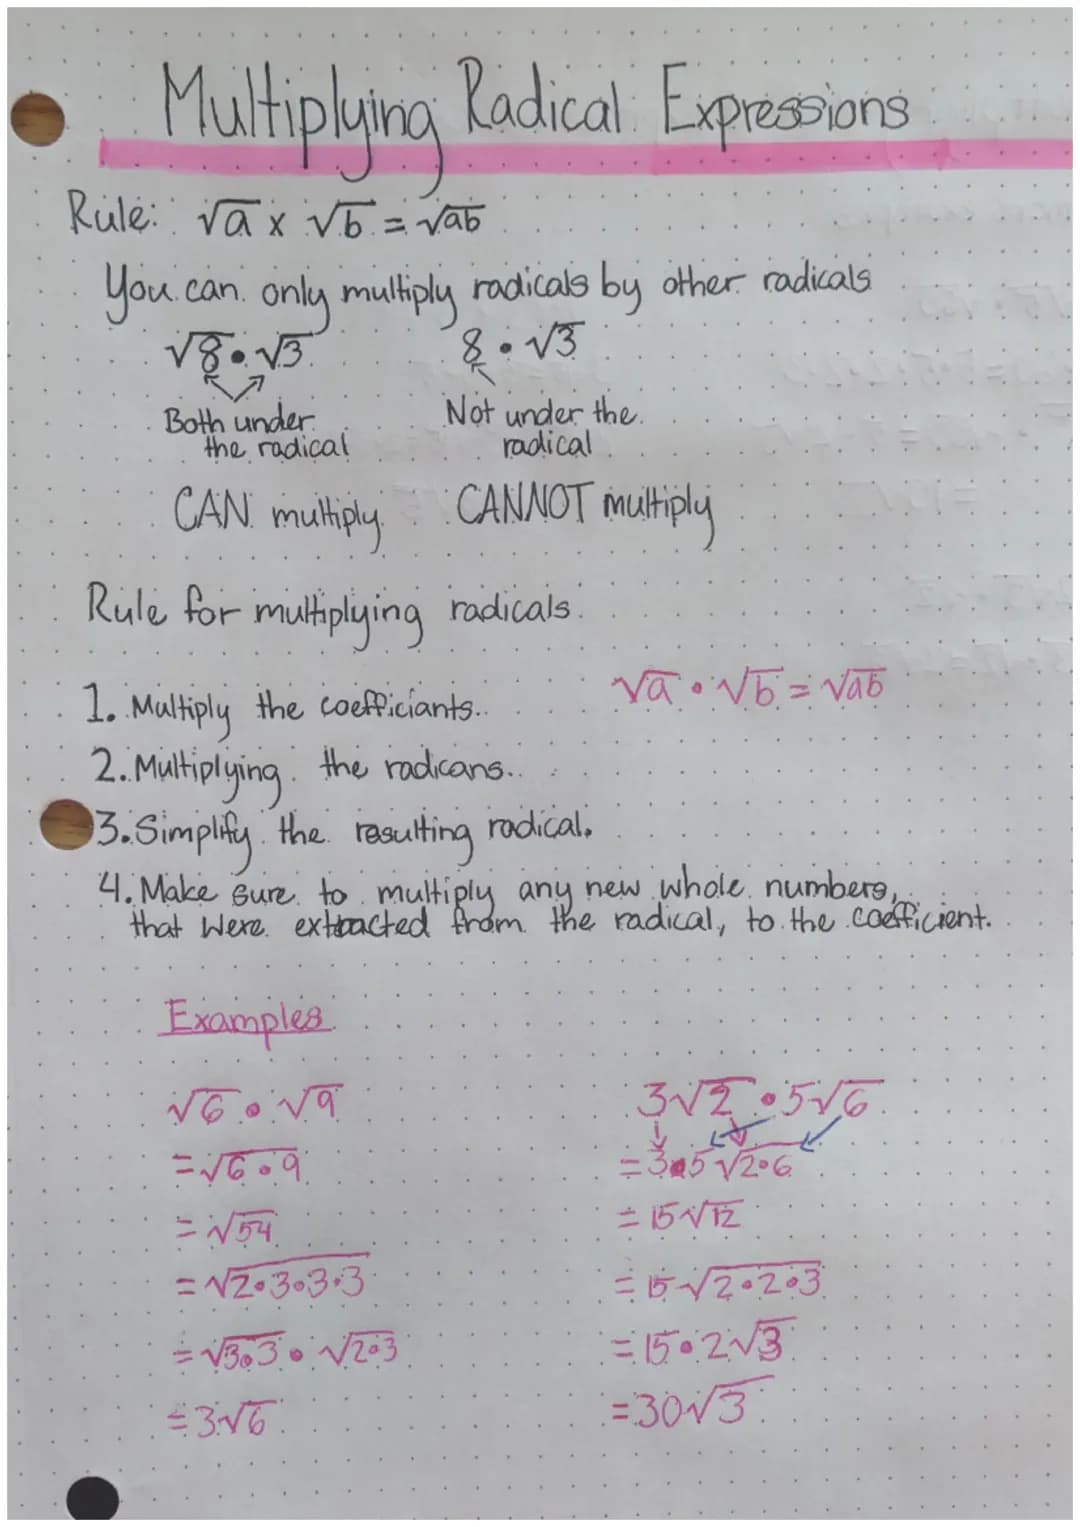 Multiplying Radical Expressions
Rule: √a x √b = √ab
You can only multiply radicals by other radicals
√8 • √3    8 • √3
Both under the radical    Not under the radical
CAN multiply    CANNOT multiply
Rule for multiplying radicals
√a • √b = √ab
1. Multiply the coefficiants.
2. Multiplying the radicans.
3. Simplify the resulting radical.
4. Make sure to multiply any new whole numbers,
that were extracted from the radical, to the coefficient.
Examples
√6 • √9
= √6 • 9
= √54
= √2•3•3•3
= √3•3 • √2•3
= 3√6
3√2 • 5√6
= 3•5 √2•6
= 15√12
= 15√2•2•3
= 15•2√3
= 30√3